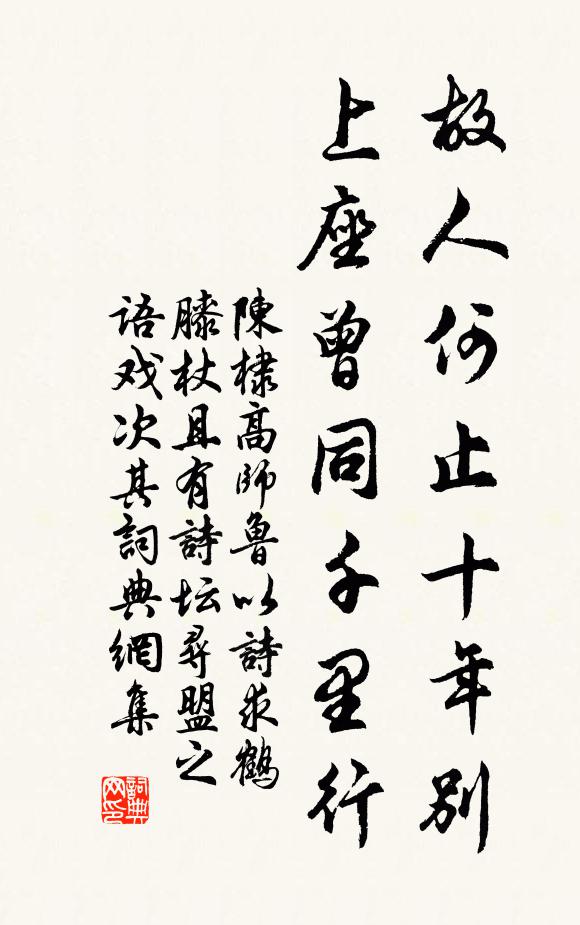 故人何止十年別
上座曾同千里行
陳棣高師魯以詩求鶴
膝杖且有詩坛尋盟之
语戏次其詞典網集
詞典网印